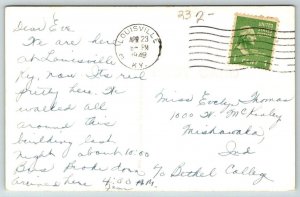 23 2-
LOUISVILLE
APR 23
-PM
1949
KY.
Dear Eve
We are here
at Louisville
Ky, now. It's real
pretty here. We
walked all
around this
building last
night about 10:00
Bus
around here 4:00 P.M.
Miss Evelyn Thomas
1000 W. McKinley
Mishawaka,
Ind
c/o Bethel College